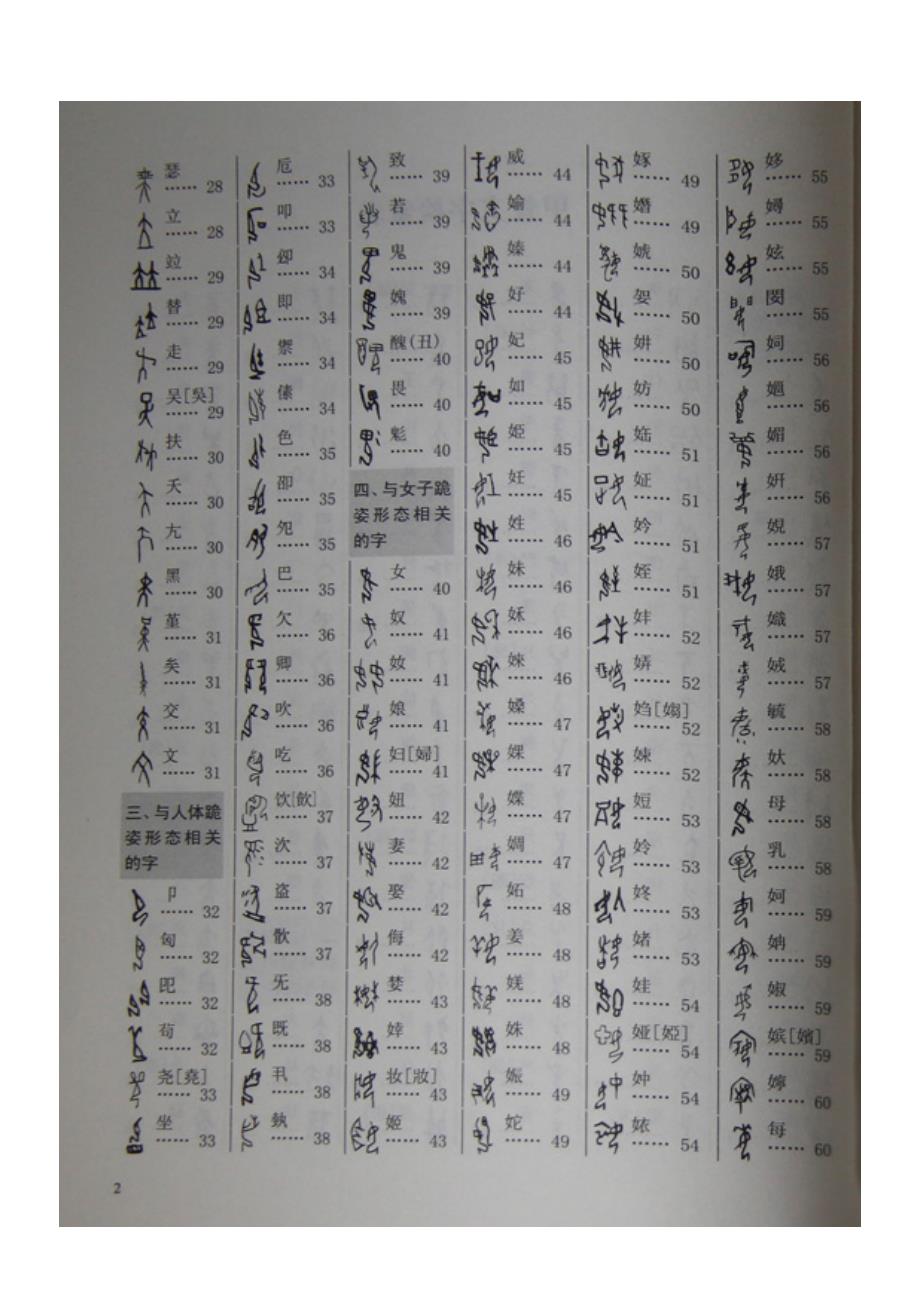 瑟
…… 28
立
…… 28
竝
…… 29
替
…… 29
走
…… 29
吴[吳]
…… 29
扶
…… 30
夭
…… 30
亢
…… 30
黑
…… 30
堇
…… 31
矣
…… 31
交
…… 31
文
…… 31
三、与人体跪
姿形态相关
的字
卩
…… 32
匈
…… 32
…… 32
苟
…… 32
尧[堯]
…… 33
坐
…… 33
卮
…… 33
叩
…… 33
卹
…… 34
即
…… 34
禦
…… 34
傣
…… 34
色
…… 35
卲
…… 35
夗
…… 35
巴
…… 35
欠
…… 36
卿
…… 36
吹
…… 36
吃
…… 36
饮[飲]
…… 37
次
…… 37
盗
…… 37
…… 37
旡
…… 38
既
…… 38
丮
…… 38
…… 38
致
…… 39
若
…… 39
鬼
…… 39
媿
…… 39
醜(丑)
…… 40
畏
…… 40
鬽
…… 40
四、与女子跪
姿形态相关
的字
女
…… 40
奴
…… 41
奻
…… 41
娘
…… 41
妇[婦]
…… 41
妞
…… 42
妻
…… 42
娶
…… 42
侮
…… 42
婪
…… 43
婞
…… 43
妆[妝]
…… 43
姬
…… 43
威
…… 44
媮
…… 44
嫀
…… 44
好
…… 44
妃
…… 45
如
…… 45
姫
…… 45
妊
…… 45
姓
…… 46
妹
…… 46
…… 46
婡
…… 46
嫎
…… 47
婐
…… 47
媟
…… 47
婤
…… 47
妬
…… 48
姜
…… 48
媄
…… 48
姝
…… 48
娠
…… 49
妮
…… 49
嫁
…… 49
…… 49
…… 50
妿
…… 50
妌
…… 50
妨
…… 50
…… 51
姃
…… 51
妗
…… 51
姪
…… 51
妦
…… 52
娉
…… 52
㛀[媰]
…… 52
娻
…… 52
娖
…… 53
姈
…… 53
㚵
…… 53
媎
…… 53
娃
…… 54
娅[婭]
…… 54
妕
…… 54
㛄
…… 54
姼
…… 55
…… 55
妶
…… 55
閔
…… 55
…… 56
…… 56
媚
…… 56
妍
…… 56
婗
…… 57
娥
…… 57
…… 57
娀
…… 57
毓
…… 58
妖
…… 58
母
…… 58
乳
…… 58
妸
…… 59
妠
…… 59
婌
…… 59
嫔[嬪]
…… 59
婷
…… 60
每
…… 60
2